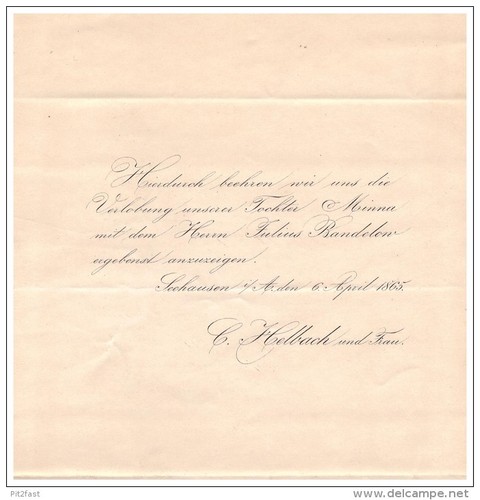 Hierdurch beehren wir uns die
Verlobung unserer Tochter Minna
mit dem Herrn Julius Randelow
ergebenst anzuzeigen.
Seehausen i/A. den 6. April 1865.
C. Helbach und Frau.
Pit2fast
delcampe.net